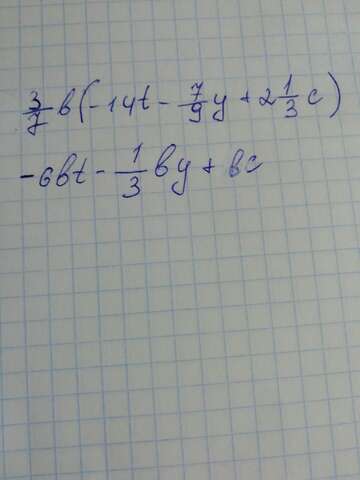 3/7 в(-14t - 7/9 y + 2 1/3 c)
-6вt - 1/3 вy + вc